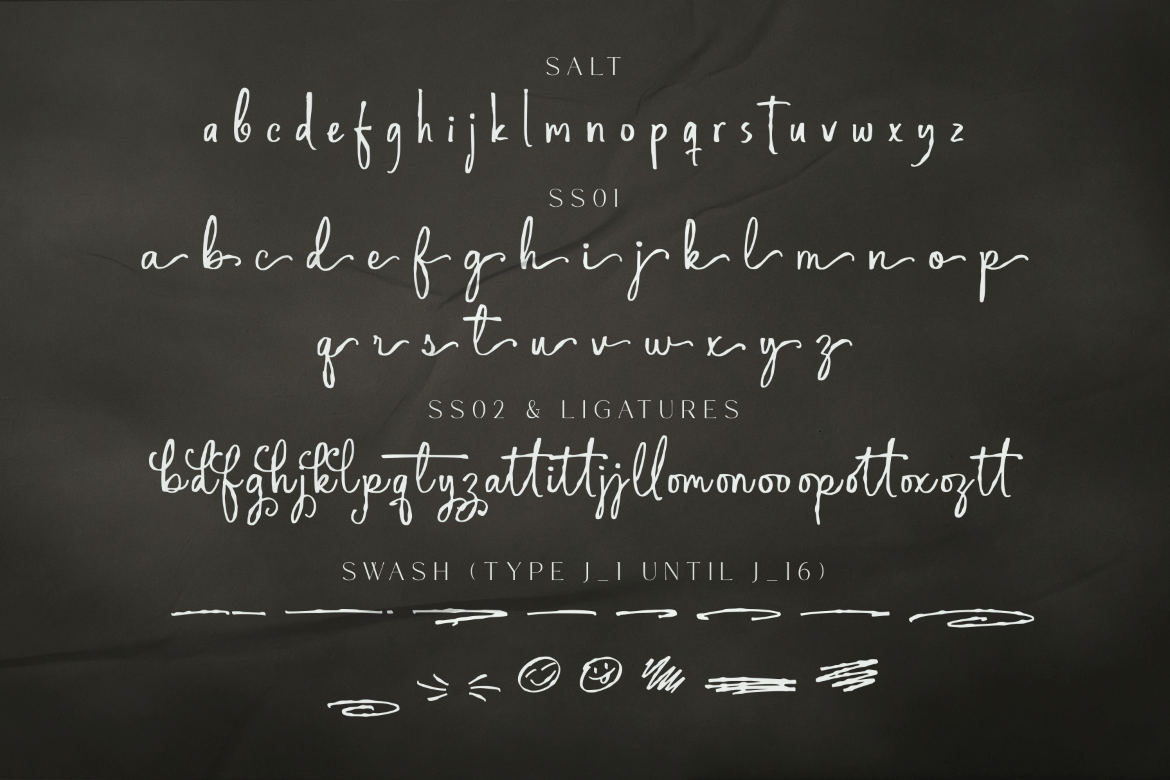 SALT
abcdefghijklmnopqrstuvwxyz
SS01
abcdefghijklmnop
qrstuvwxyz
SS02 & LIGATURES
bdfghjklpqtyzattittjjllomonooopottoxoztt
SWASH (TYPE J_1 UNTIL J_16)